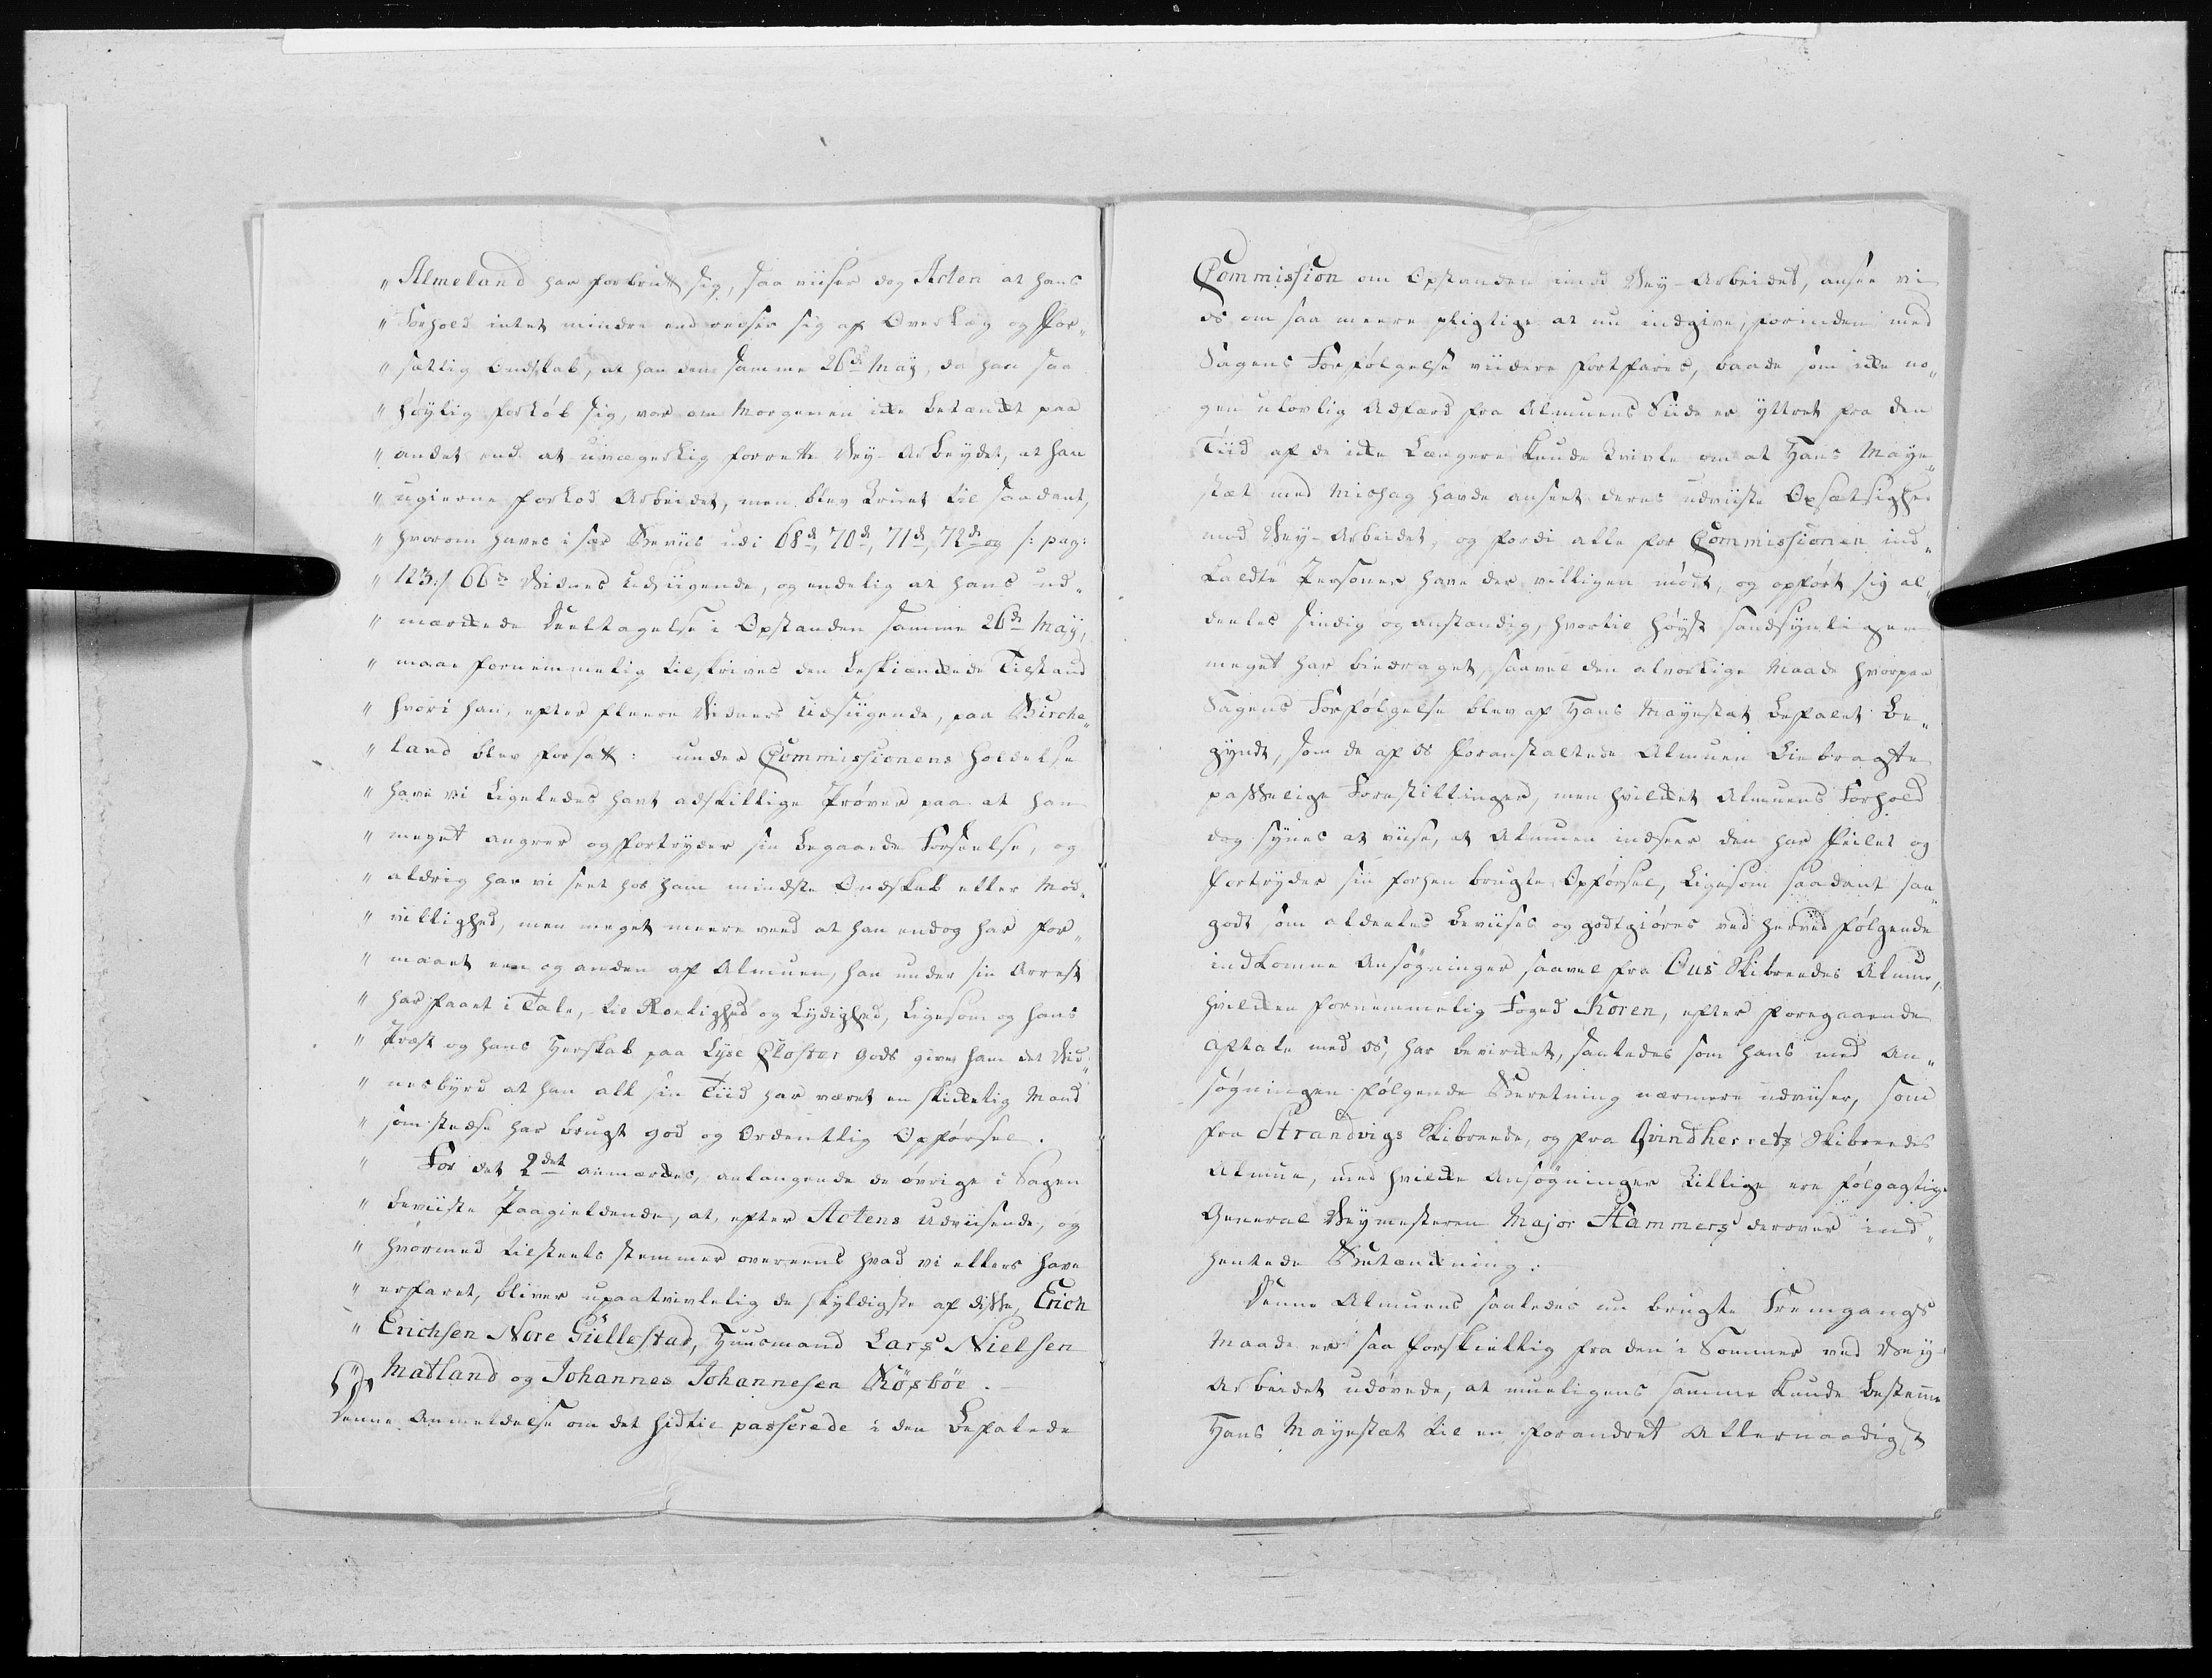 " Almeland har forbrudt sig, saa viiser dog Acten at hans
" Forhold intet mindre end reiser sig af Overlæg og For„
" sættlig Ondskab, at han den samme 26de May, da han saa
" høylig forløb sig, var om Morgenen ikke betænkt paa
" andet end at uvægerlig forrette Vey-Arbeydet, at han
" ugierne forlod Arbeidet, men blev truet til saadant,
" hvorom haves i sær Beviis udi 68de, 70de, 71de, 72de og /: pag:
" 123:/ 66de Vidnes Udsigende, og endelig at hans ud„
" mærkede Deeltagelse i Opstanden samme 26de May,
" maae fornemmelig tilskrives den beskiænkede Tilstand
" hvori han, efter fleere Vidners Udsiigende, paa Birche„
" land blev forsatt: under Commissionens Holdelse
" have vi ligeledes havt adskillige Prøver paa at han
" meget angrer og fortryder sin begaaede Forseelse, og
" aldrig har vi seet hos ham mindste Ondskab eller Mod„
" villighed, men meget meere veed at han endog har for„
" maaet een og anden af Almuen, han under sin Arrest
" har faaet i Tale, til Roelighed og Lydighed, ligesom og hans
" Præst og hans Herskab paa Lyse Closter Gods giver ham det Vid„
" nesbyrd at han all sin Tiid har været en skikkelig Mand
" som stedse har brugt god og Ordentlig Opførsel.
" For det 2det anmærkes, anlangende de øvrige i Sagen
" beviiste Paagieldende, at, efter Actens Udviisende, og
" hvormed tildeels stemmer overeens hvad vi ellers have
" erfaret, bliver upaatvivlelig de skyldigste af disse, Erich
" Erichsen Nore Giellestad, Huusmand Lars Nielsen
" Matland og Johannes Johannesen Røsbøe.
Denne Anmeldelse om det hidtil passerede i den befalede
Commission om Opstanden imod Vey-Arbeidet, ansee vi
os om saa meere pligtige at nu indgive, forinden med
Sagens Forfølgelse viidere fortfares, baade som ikke no„
gen ulovlig Adfærd fra Almuens Siide er yttret fra den
Tiid af de ikke længere kunde tvivle om at Hans Maye„
stæt med Mishag havde anseet deres udviiste Opsætsighed
mod Vey-Arbeidet, og fordi alle for Commissionen ind„
kaldte Personer have der villigen mødt, og opført sig al„
deeles sindig og anstændig, hvortil høyst sandsynligen
meget har bidraget, saavel den alvorlige Maade hvorpaa
Sagens Forfølgelse blev af Hans Mayestæt befalet be„
gyndt, som de af os foranstaltede Almuen biebragte
passelige Forestillinger, men hvilket Almuens Forhold
dog synes at viise, at Almuen indseer den har feilet og
fortryder sin forhen brugte Opførsel, ligesom saadant saa„
godt som aldeeles beviises og godtgiøres ved hedved følgende
indkomne Ansøgninger saavel fra Ous Skibredes Almue,
hvilken fornemmelig Foged Koren, efter foregaaende
Aftale med os, har bevirket, saaledes som hans med An„
søgningen følgende Beretning nærmere udviiser, som
fra Strandvigs Skibreede, og fra Qvindherrets Skibreedes
Almue, med hvilke Ansøgninger tillige ere følgagtige
General Veymesteren Major Hammers derover ind„
hentede Betænkning.
Denne Almuens saaledes nu brugte Fremgangs
Maade er saa forskiellig fra den i Sommer ved Vey-
Arbeidet udøvede, at mueligens samme kunde bestemme
Hans Mayestæt til en forandret Allernaadigst